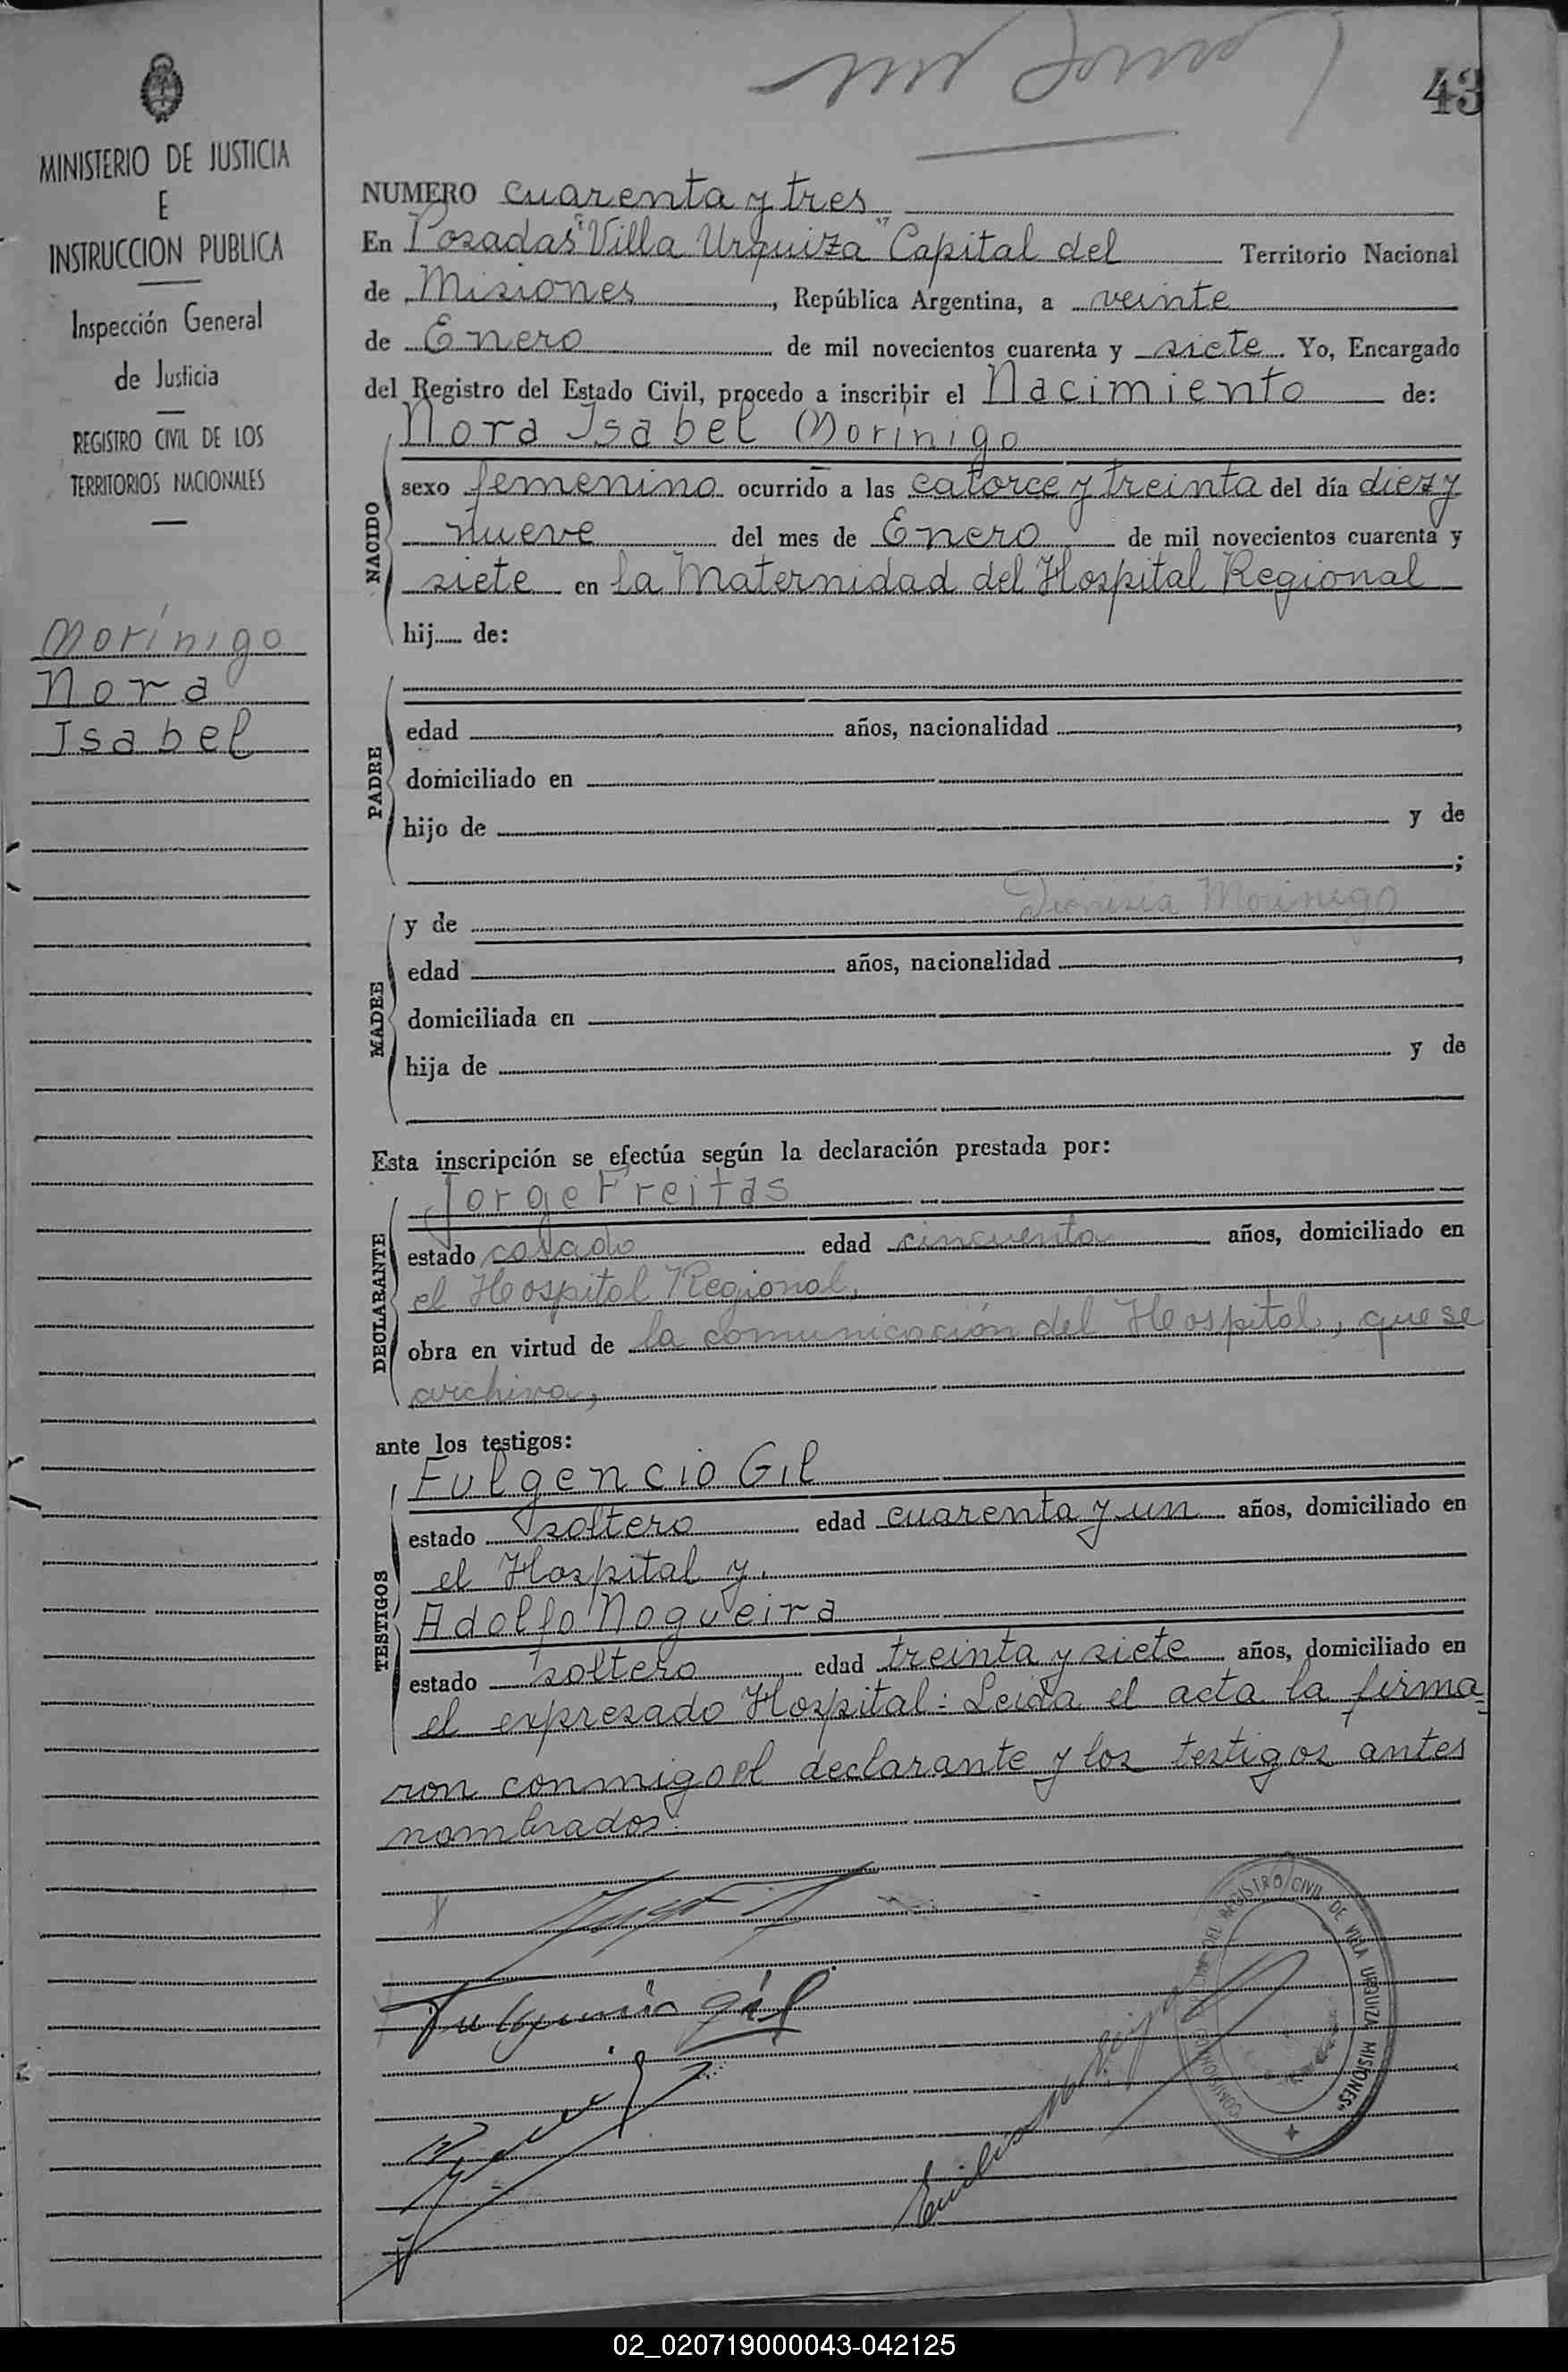 43
MINISTERIO DE JUSTICIA
E
INSTRUCCION PUBLICA
Inspección General
de Justicia
REGISTRO CIVIL DE LOS
TERRITORIOS NACIONALES
Morínigo
Nora
Isabel
NUMERO cuarenta y tres
En Posadas "Villa Urquiza" Capital del Territorio Nacional
de Misiones, República Argentina, a veinte
de Enero de mil novecientos cuarenta y siete. Yo, Encargado
del Registro del Estado Civil, procedo a inscribir el Nacimiento de:
NACIDO
Nora Isabel Morínigo
sexo femenino ocurrido a las catorce y treinta del día diez y
nueve del mes de Enero de mil novecientos cuarenta y
siete en la Maternidad del Hospital Regional
hij...... de:
PADRE
edad años, nacionalidad ,
domiciliado en
hijo de y de
;
MADRE
y de Dionisia Morinigo
edad años, nacionalidad ,
domiciliada en
hija de y de
Esta inscripción se efectúa según la declaración prestada por:
DECLARANTE
Jorge Freitas
estado casado edad cincuenta años, domiciliado en
el Hospital Regional,
obra en virtud de la comunicación del Hospital, que se
archiva,
ante los testigos:
TESTIGOS
Fulgencio Gil
estado soltero edad cuarenta y un años, domiciliado en
el Hospital y
Adolfo Nogueira
estado soltero edad treinta y siete años, domiciliado en
el expresado Hospital: Leida el acta la firma-
ron conmigo el declarante y los testigos antes
nombrados.
Fulgencio Gil
REGISTRO CIVIL DE VILLA URQUIZA MISIONES
02_020719000043-042125